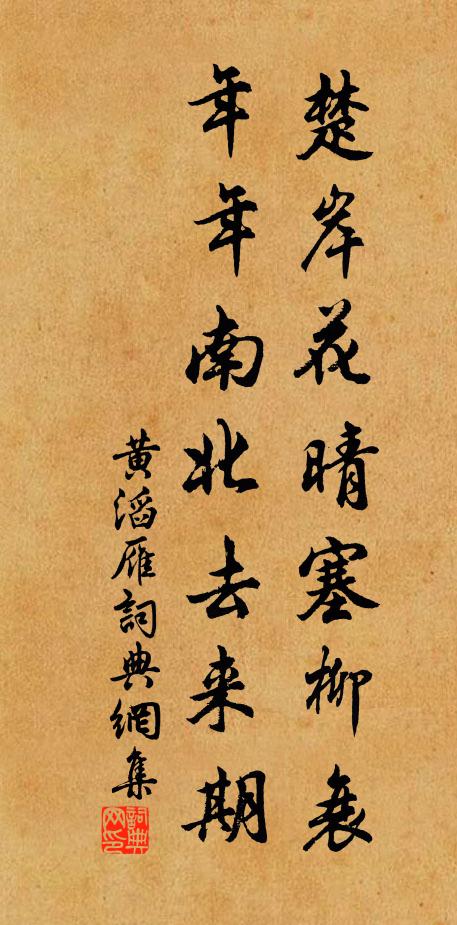 楚岸花晴塞柳衰
年年南北去来期
黄滔雁詞典網集
詞典
网印